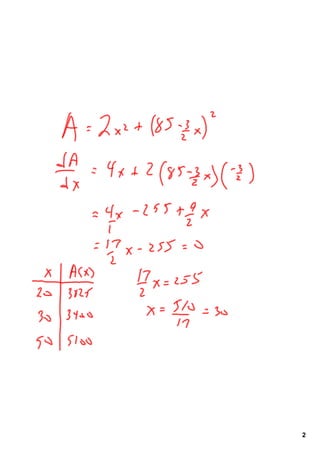 A = 2x² + (85 - 3/2 x)²
dA/dx = 4x + 2(85 - 3/2 x)(-3/2)
= 4x/1 - 255 + 9/2 x
= 17/2 x - 255 = 0
x | A(x)
20 | 3825
30 | 3400
50 | 5100
17/2 x = 255
x = 510/17 = 30
2